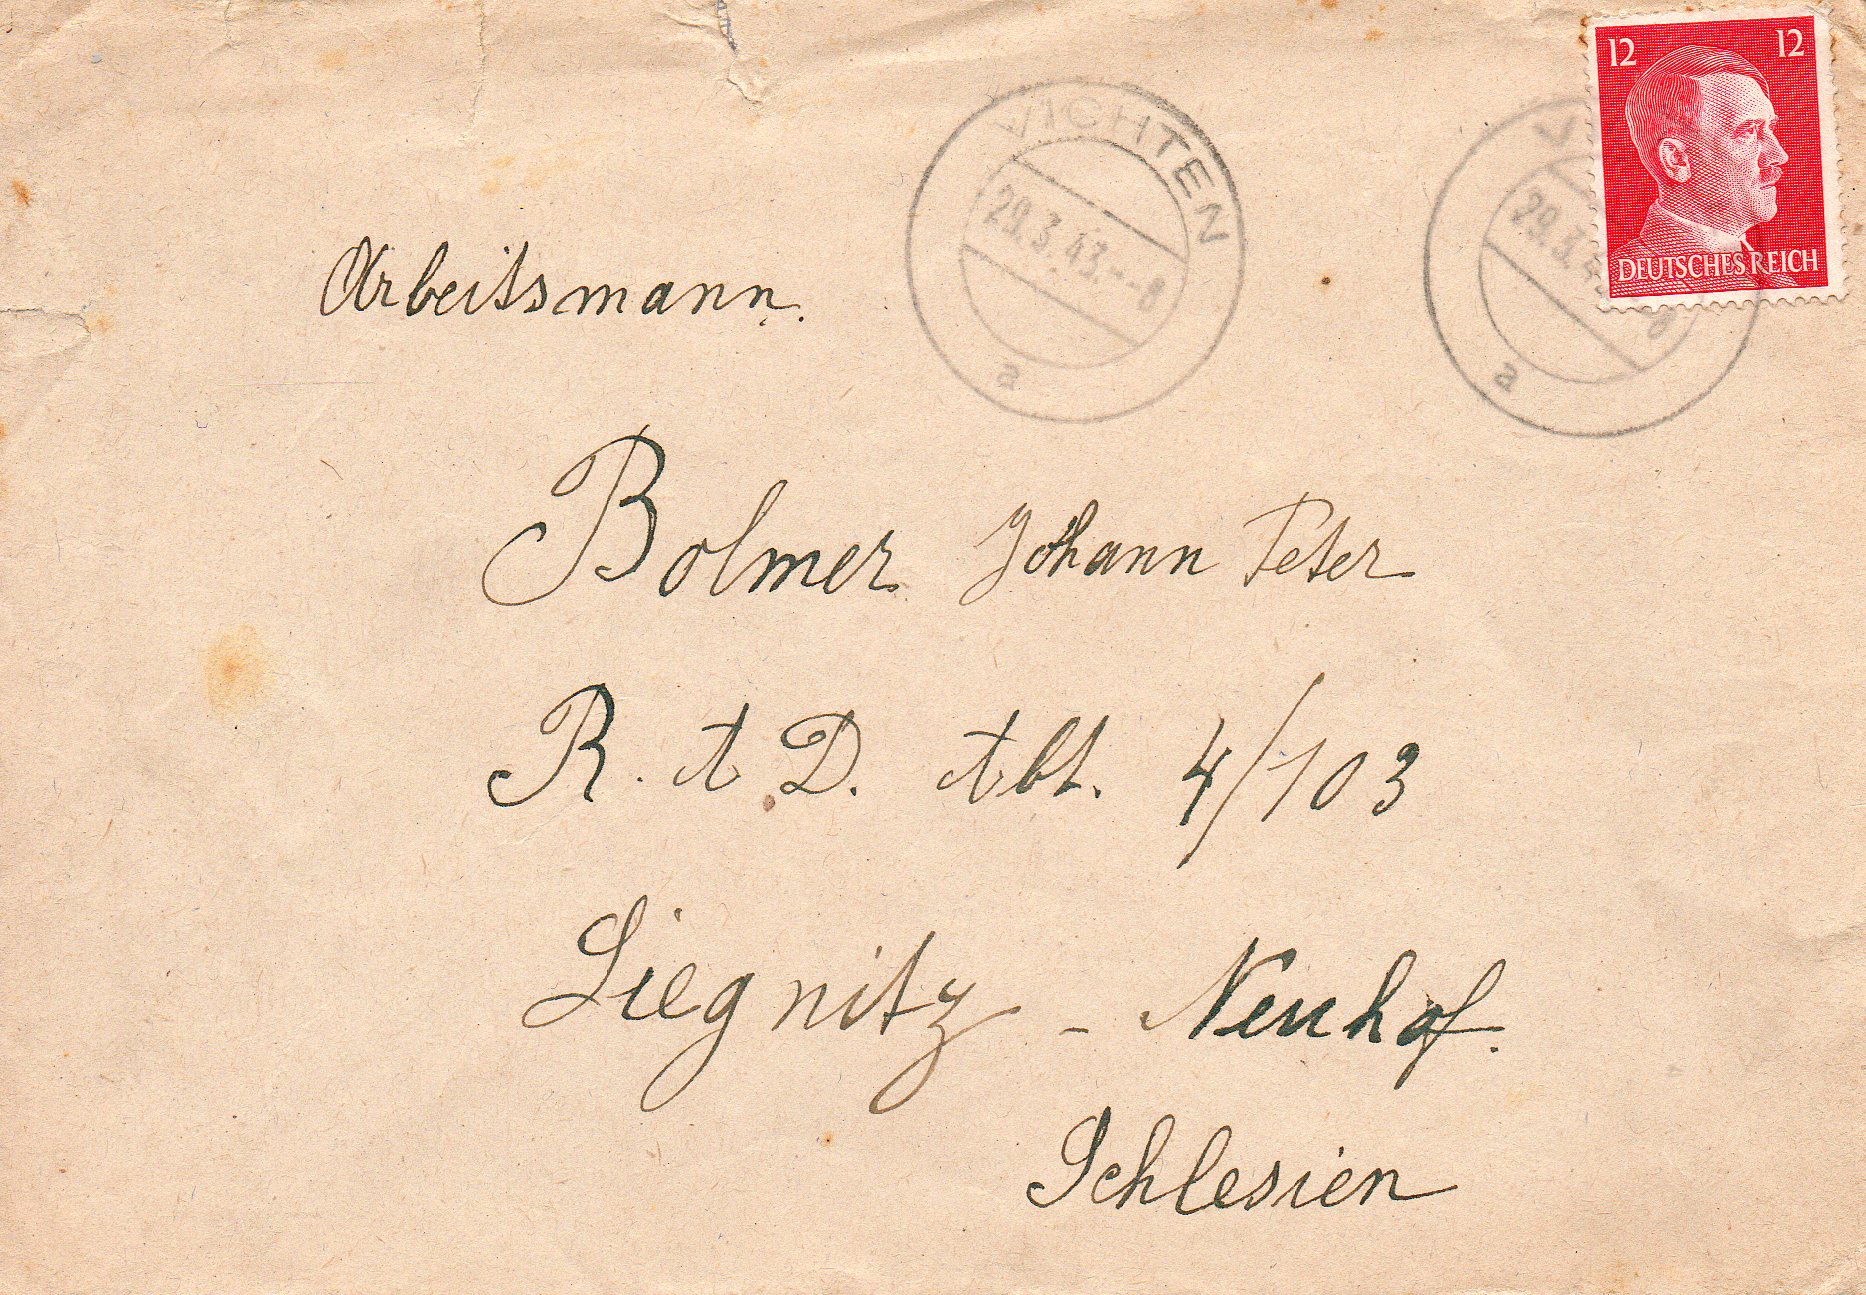 12 12
DEUTSCHES REICH
VICHTEN
29.3.43.-8
a
VI
29.3.4 -8
a
Arbeitsmann.
Bolmer Johann Peter
R. A. D. Abt. 4/103
Liegnitz - Neuhof.
Schlesien